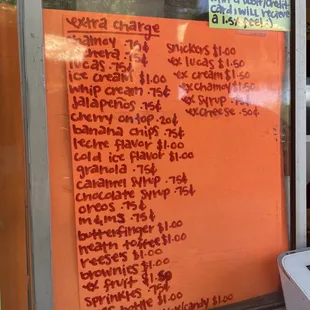 debit/credit
card will recieve
a 1.5% feel!
extra charge
chamoy .75¢
lucas .75¢
ice cream $1.00
whip cream .75¢
jalapeños .75¢
cherry on top .20¢
banana chips .75¢
leche flavor $1.00
cold ice flavor $1.00
granola .75¢
caramel syrup .75¢
chocolate syrup .75¢
oreos .75¢
m&m's .75¢
butterfinger $1.00
heath toffee $1.00
reeses $1.00
brownies $1.00
ex fruit $1.50
sprinkles .75¢
bottle $1.00
snickers $1.00
ex lucas $1.50
ex cream $1.50
ex chamoy $1.50
ex syrup
ex cheese .50¢
/candy $1.00